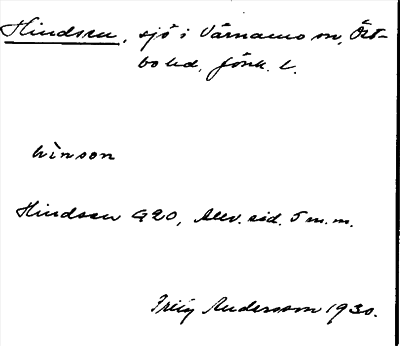 Hindsen, sjö i Värnamo sn, Öst-
bo hd, Jönk. l.
hìnson
Hindsen G20, Elev. sid. 5 m.m.
Andersson 1930.